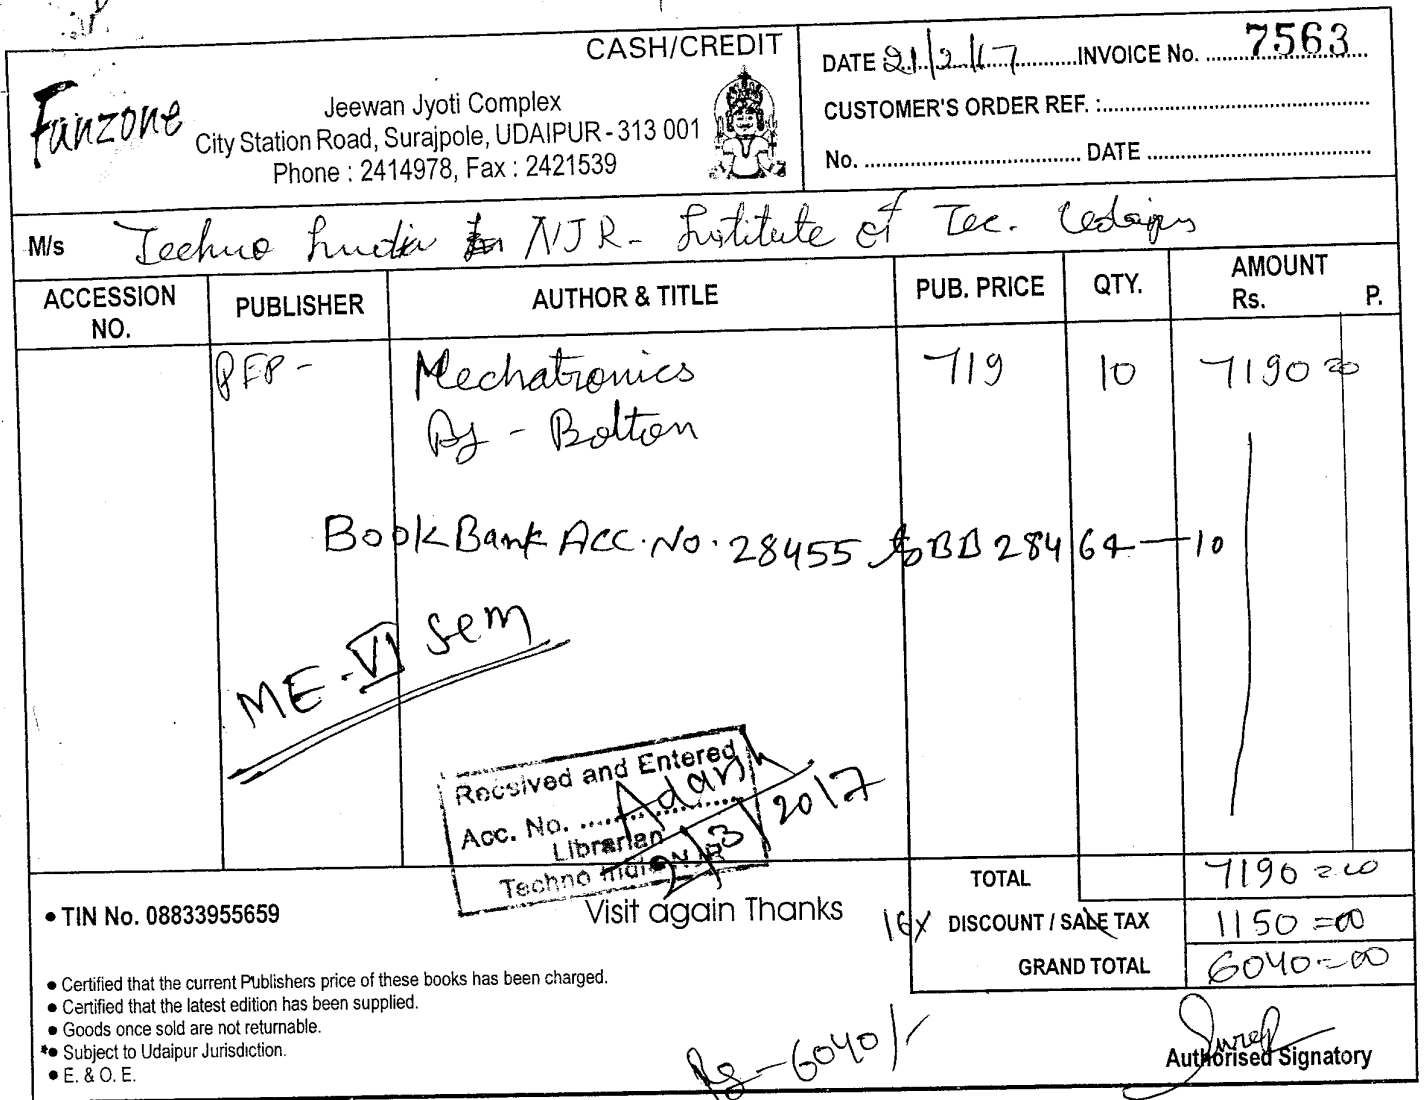 CASH/CREDIT
Funzone
Jeewan Jyoti Complex
City Station Road, Surajpole, UDAIPUR - 313 001
Phone : 2414978, Fax : 2421539
DATE 21/2/17 INVOICE No. 7563
CUSTOMER'S ORDER REF. :
No. DATE
M/s Techno India NJR- Institute of Tec. Udaipur
ACCESSION NO. PUBLISHER AUTHOR & TITLE PUB. PRICE QTY. AMOUNT Rs. P.
Mechatronics 719 10 7190=00
By - Bolton
Book Bank Acc. No. 28455 to BB 28464 — 10
ME-VI Sem
Received and Entered
Acc. No. Adarsh
Librarian
Techno India NJR
2/3/2017
TOTAL 7190=00
• TIN No. 08833955659
Visit again Thanks
16% DISCOUNT / SALE TAX 1150=00
GRAND TOTAL 6040=00
• Certified that the current Publishers price of these books has been charged.
• Certified that the latest edition has been supplied.
• Goods once sold are not returnable.
• Subject to Udaipur Jurisdiction.
• E. & O. E.
Rs-6040/-
Authorised Signatory